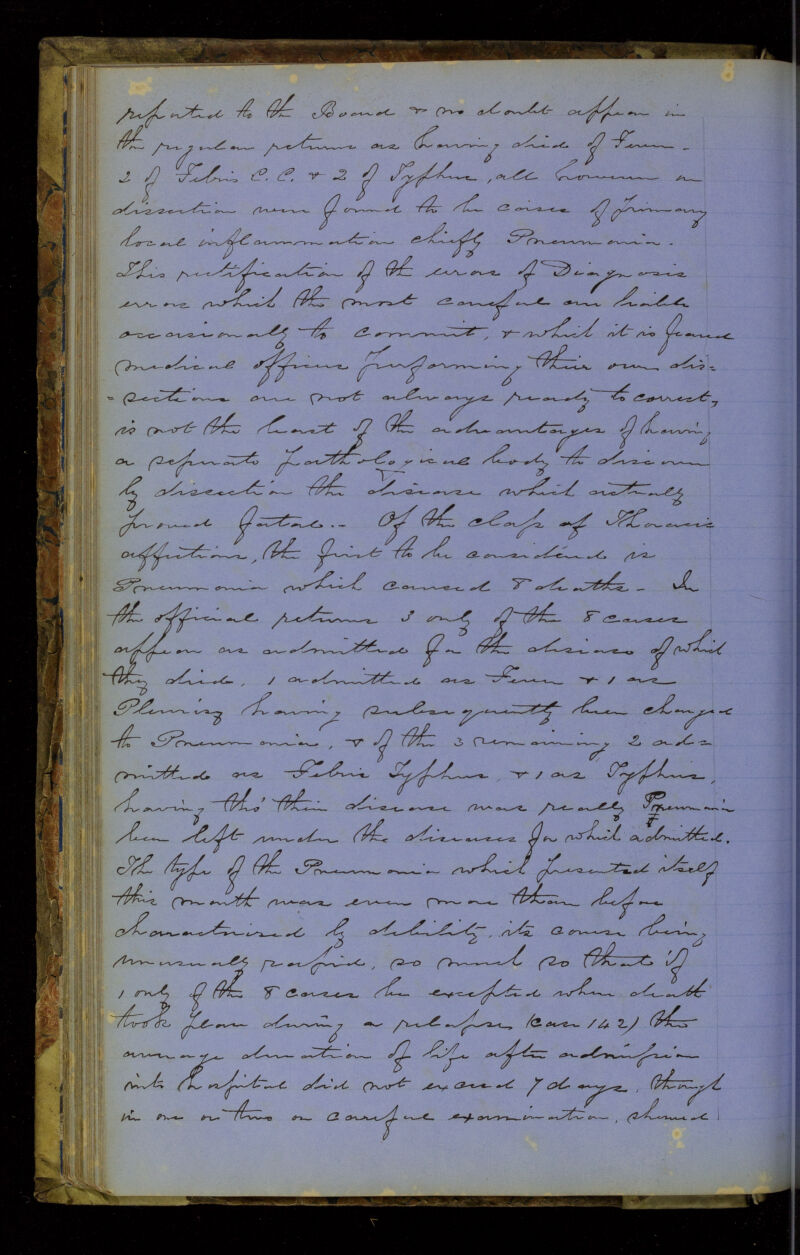 reported to the Board & no doubt appear in
the regular returns as having died of Fever -
2 of Febris C. C. & 2 of Typhus, all however on
dissection were found to be cases of primary
local inflammation chiefly Pneumonia.
This rectification of the errors of Diagnosis
errors which the most careful are liable
occasionally to commit, & which it is feared
medical officers performing their own dis=
=sections are not always ready to correct,
is not the least of the advantages of having
a separate pathological body to discover
by dissection the disease which actually
proved fatal. - Of the class of Thoracic
affections, the first to be considered is
Pneumonia which caused 8 deaths - In
the official returns 3 only of the 8 cases
appear as admitted for the disease of which
they died, 1 admitted as Fever & 1 as
Pleurisy having subsequently been changed
to Pneumonia, & of the 3 remaining 2 ad=
mitted as Febris Typhus, & 1 as Typhus,
having tho' their disease was really Pneumonia
been left under the diseases for which admitted.
The type of the Pneumonia which presented itself
this month was even more than before
characterised by debility, its course being
unusually rapid, so much so that if
1 only of the 8 cases be excepted where death
took place during a relapse (case 142) the
average duration of life after admission
into hospital did not exceed 7 days, though
in one or two on careful examination, showed